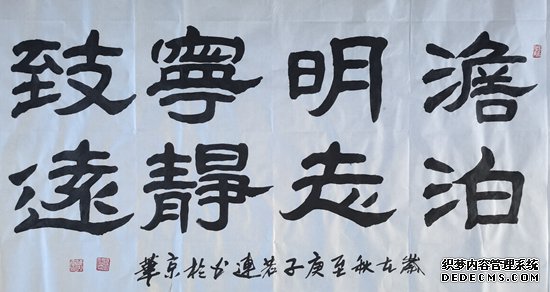 澹泊
明志
寧靜
致遠
秋至庚子若連书於京華
织梦内容管理系统
DEDECMS.COM